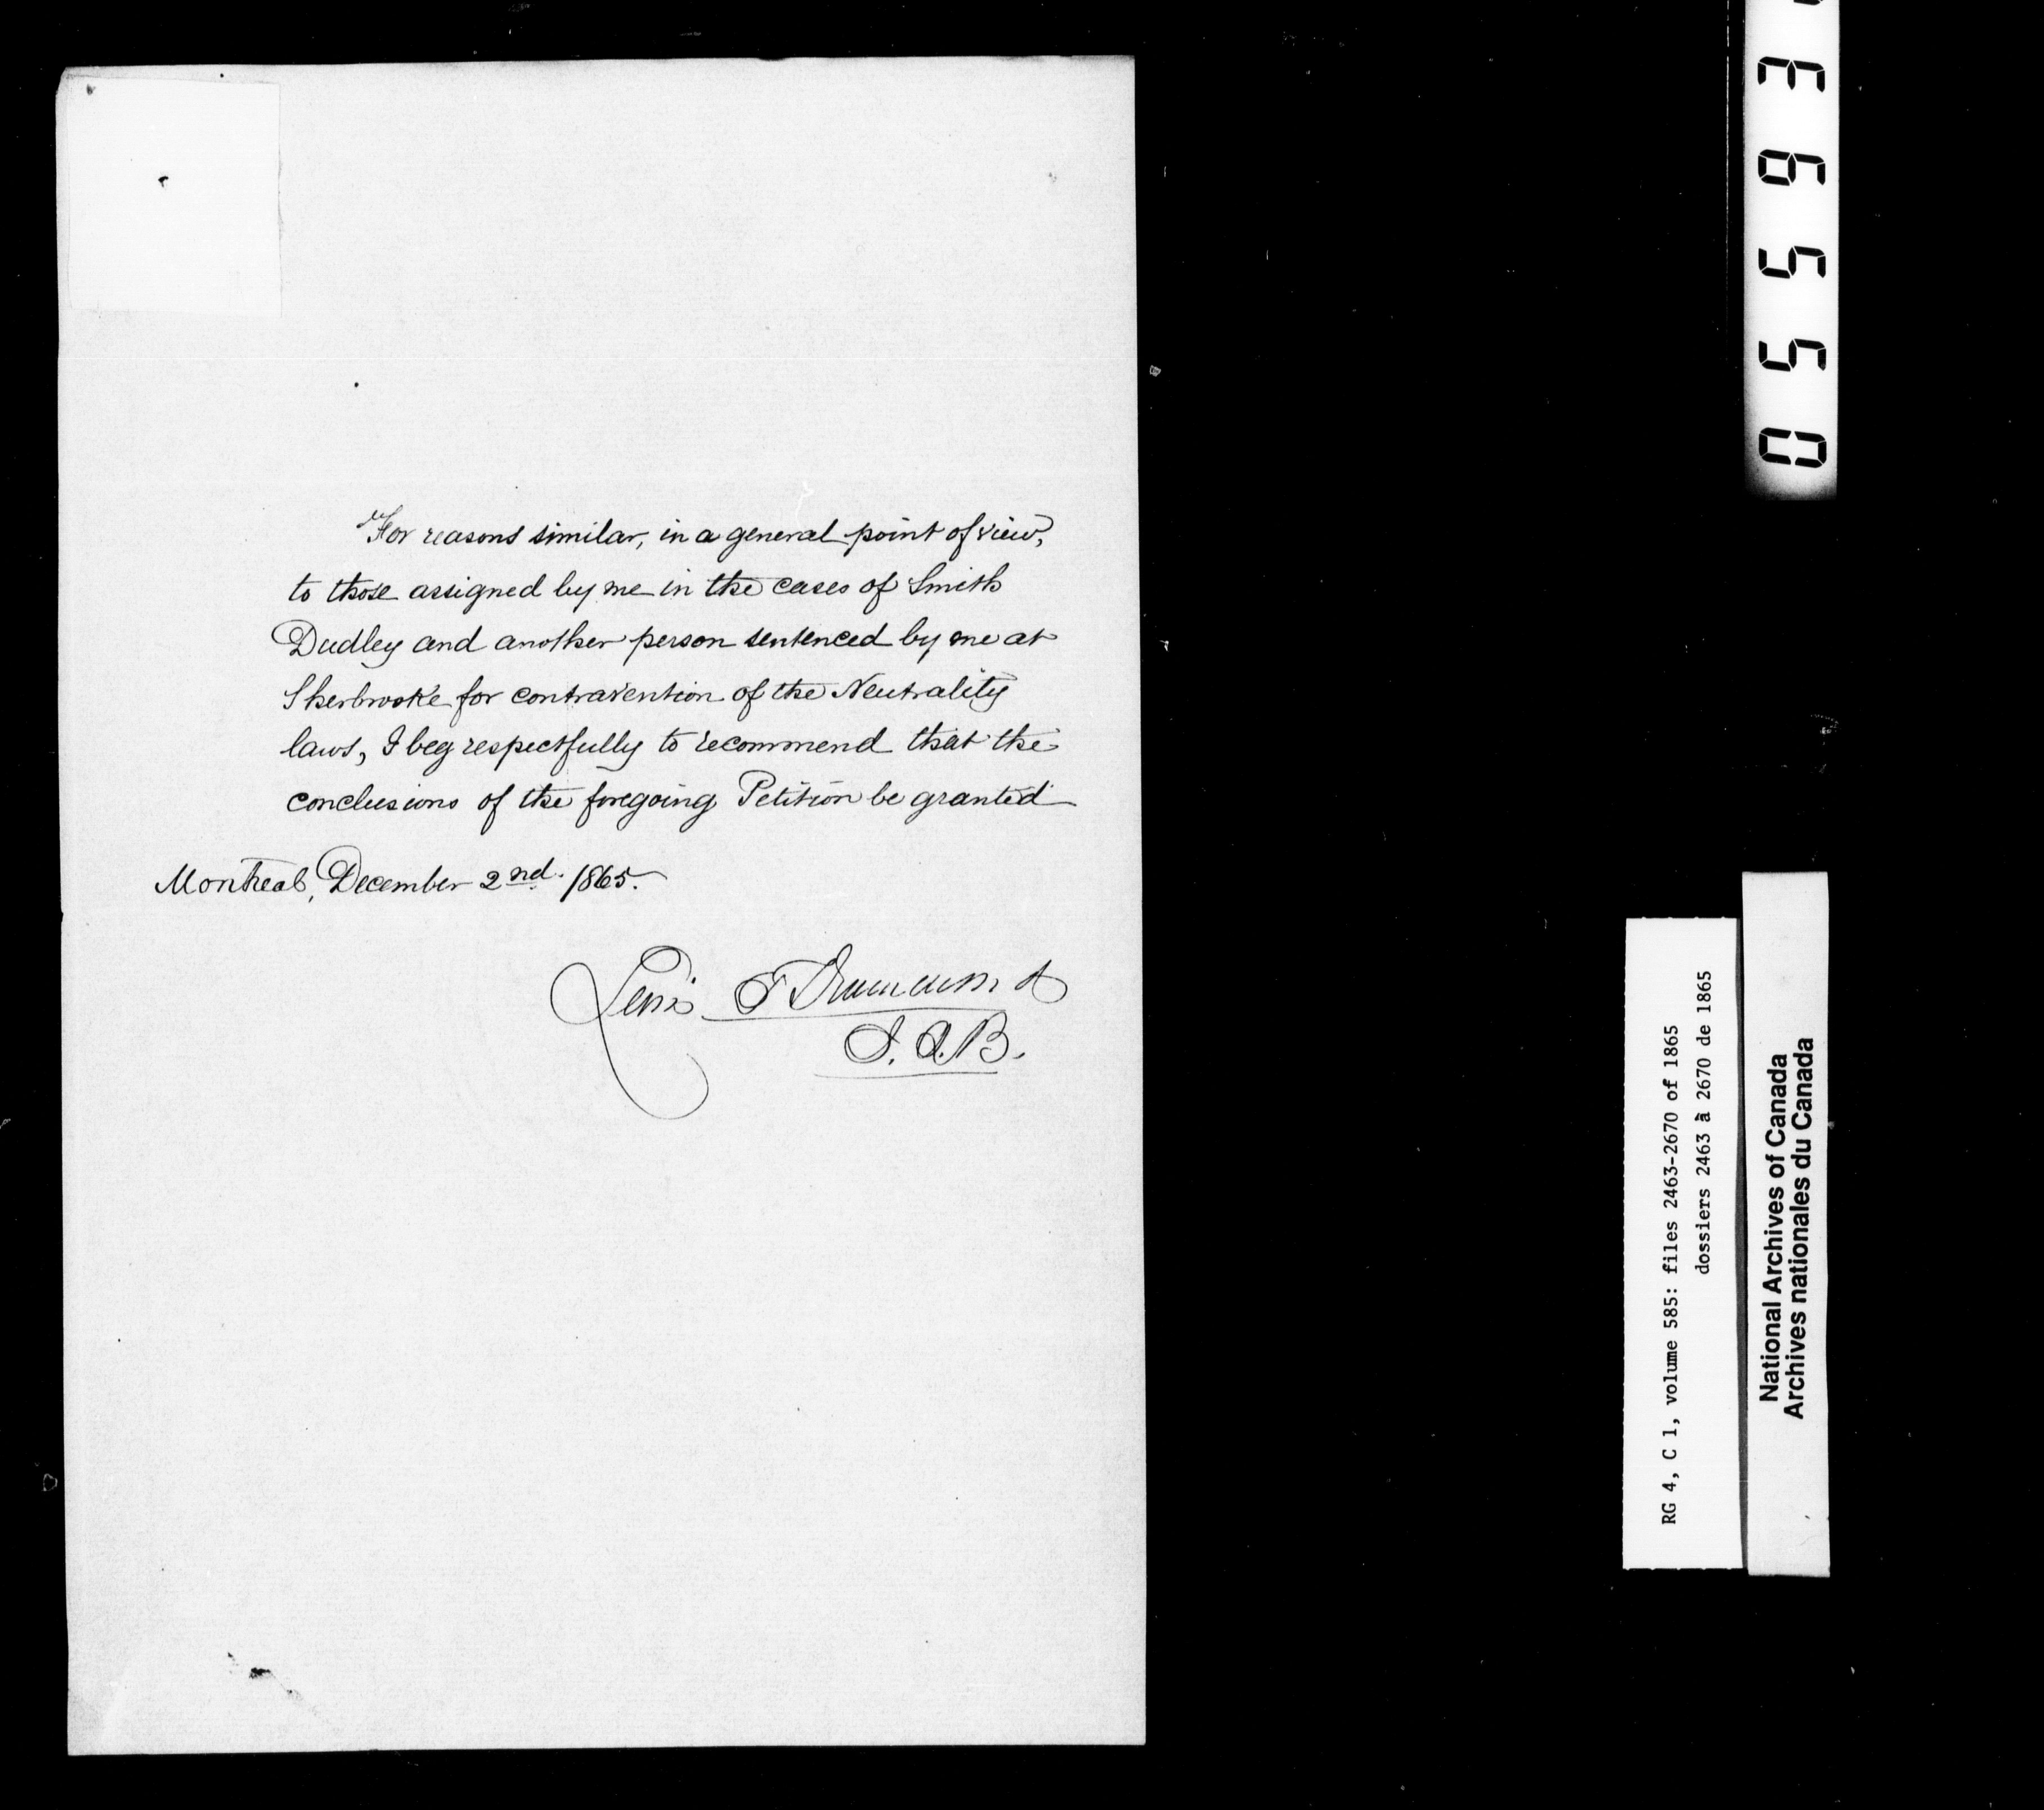 For reasons similar, in a general point of view,
to those assigned by me in the cases of Smith
Dudley and another person sentenced by me at
Sherbrooke for contravention of the Neutrality
laws, I beg respectfully to recommend that the
conclusions of the foregoing Petition be granted
Montreal, December 2nd. 1865.
Lewis T Drummond
J. Q. B.
05593
RG 4, C 1, volume 585: files 2463-2670 of 1865
dossiers 2463 à 2670 de 1865
National Archives of Canada
Archives nationales du Canada